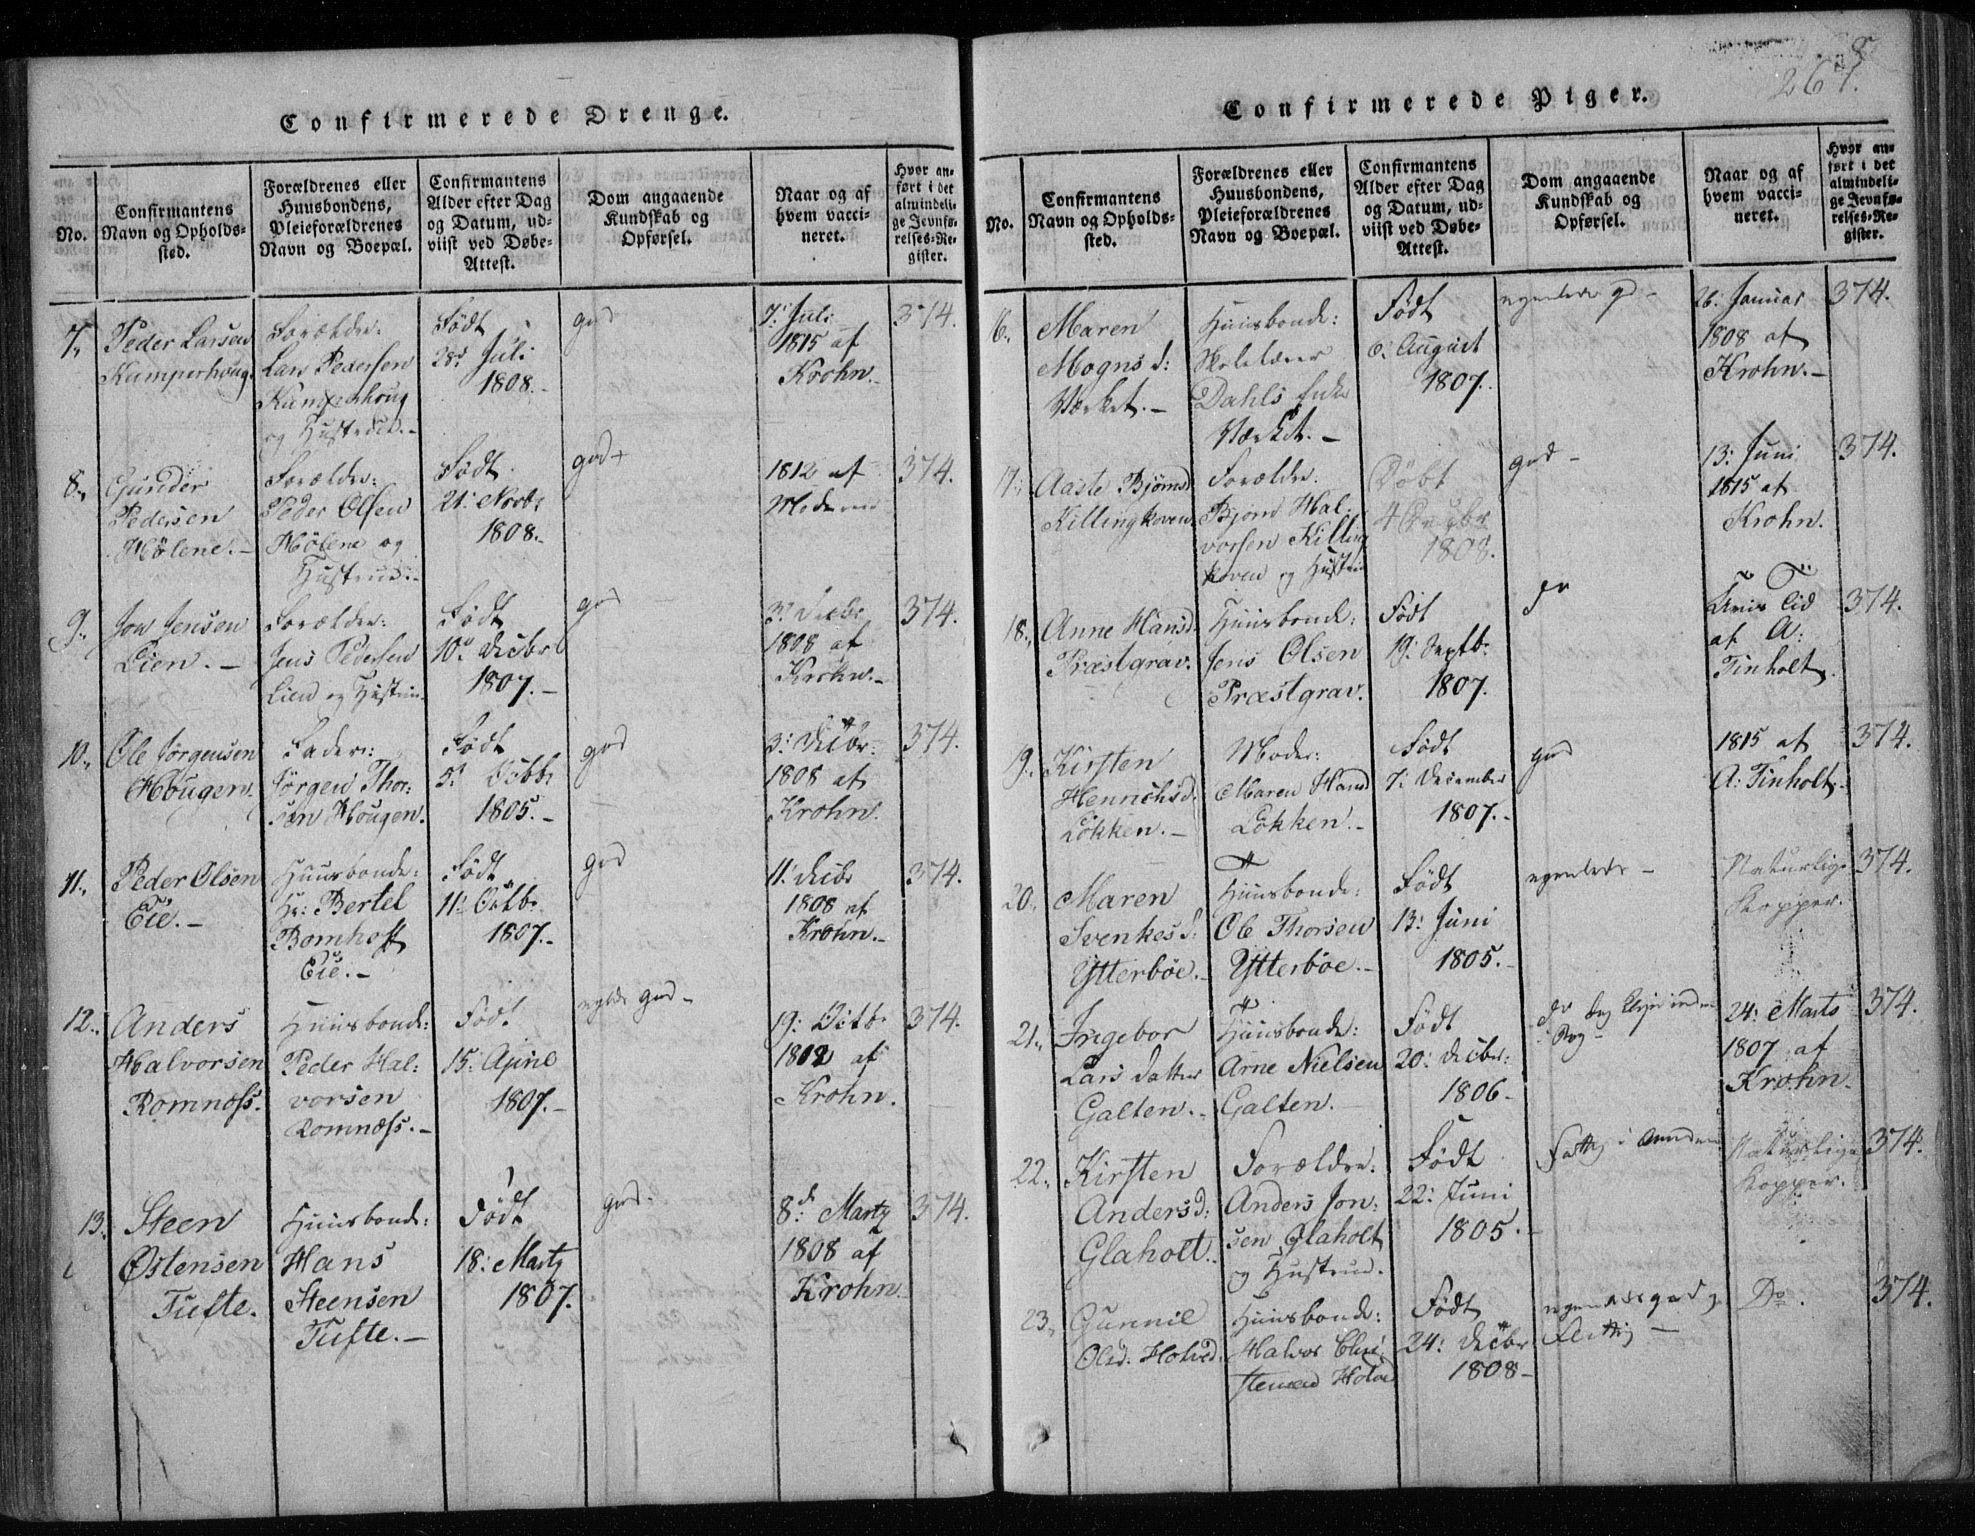 Confirmerede Drenge.
No.
Confirmantens
Navn og Opholds-
sted.
Forældrenes eller
Huusbondens,
Pleieforældrenes
Navn og Boepæl.
Confirmantens
Alder efter Dag
og Datum, ud-
viist ved Døbe-
Attest.
Dom angaaende
Kundskab og
Opførsel.
Naar og af
hvem vacci-
neret.
Hvor an-
ført i det
almindeli-
ge Jevnfø-
relses-Re-
gister.
7.
Peder Larsen
Kumperhoug.
Forældre:
Lars Pedersen
Kumperhoug
og Hustrue.-
Født
28de Juli
1808.-
god
7: Juli
1815 af
Krohn.-
374.
8.
Gunder
Pedersen
Hølene.-
Forældre:
Peder Olsen
Hølene og
Hustrue.-
Født
21: Novbr
1808.-
god
1812 af
Moderen
374.
9.
Jon Jensen
Lien.-
Forældre:
Jens Pedersen
Lien og Hustrue
Født
10: Decbr
1807.-
god
3: Decbr
1808 af
Krohn.-
374.
10.
Ole Jørgensen
Hougen.
Fader:
Jørgen Thor:
sen Hougen.
Født
5: Octbr
1805.-
god
3: Decbr:
1808 af
Krohn.
374.
11.
Peder Olsen
Eie.-
Huusbonde:
Hr: Bertel
Bomhoff
Eie.-
Født
11: Octbr
1807.-
god
11: Decbr
1808 af
Krohn.-
374.
12.
Anders
Halvorsen
Romnæss.
Huusbonde:
Peder Hal:
vorsen
Romnæss.-
Født
15: April
1807.-
god-
19: Octb.
1812 af
Krohn.
374.
13.
Steen
Østensen
Tufte.
Huusbonde:
Hans
Steensen
Tufte.-
Født
18: Marty
1807.
god.
8d: Marty
1808 af
Krohn.
374.
267.
Confirmerede Piger.
No.
Confirmantens
Navn og Opholds-
sted.
Forældrenes eller
Huusbondens,
Pleieforældrenes
Navn og Boepæl.
Confirmantens
Alder efter Dag
og Datum, ud-
viist ved Døbe-
Attest.
Dom angaaende
Kundskab og
Opførsel.
Naar og af
hvem vacci-
neret.
Hvor an-
ført i det
almindeli-
ge Jevnfø-
relses-Re-
gister.
16.
Maren
Mogns d:
Værket.-
Huusbonde:
Skolelærer
Dahls Enke
Værket.-
Født
6: August
1807.
26: Januar
1808 af
Krohn.-
374.
17.
Aaste Bjørnsd
Killingkoven
Forældre:
Bjørn Hal:
vorsen Killing
koven og Hustrue
Døbt
1808.
god-
13: Juni
1815 af
Krohn.
374.
18.
Anne Hansd.
Præstgrav.
Huusbonde:
Jens Olsen
Præstgrav.
Født
19: Septb:
1807.
do
Tid
af A:
Tinholt.
374.
19.
Kirsten
Henrichsd.
Løkken.-
Moder:
Maren Hansd
Løkken.-
Født
7: December
1807.-
god
1815 af
A: Tinholt.
374.
20.
Maren
Svenkesd:
Ytterbøe.-
Huusbonde:
Ole Thorsen
Ytterbøe.-
Født
13: Juni
1805.-
Naturlige
Kopper.
374.
21.
Ingebor
Lars datter
Galten.-
Huusbonde:
Arne Nielsen
Galten.-
Født
20: Decbr:
1806-
do
24: Marts
1807 af
Krohn-
374.
22.
Kirsten
Andersd:
Glaholt.
Forældre:
Anders Jon:
sen Glaholt
og Hustrue.
Født
22: Juni
1805.-
Naturlige
Kopper.
374.
23.
Gunnil
Olsd: Holted.
Huusbonde:
Halvor Chri
Født
24: Decbr
1808-
god
Flittig-
Do.
374.